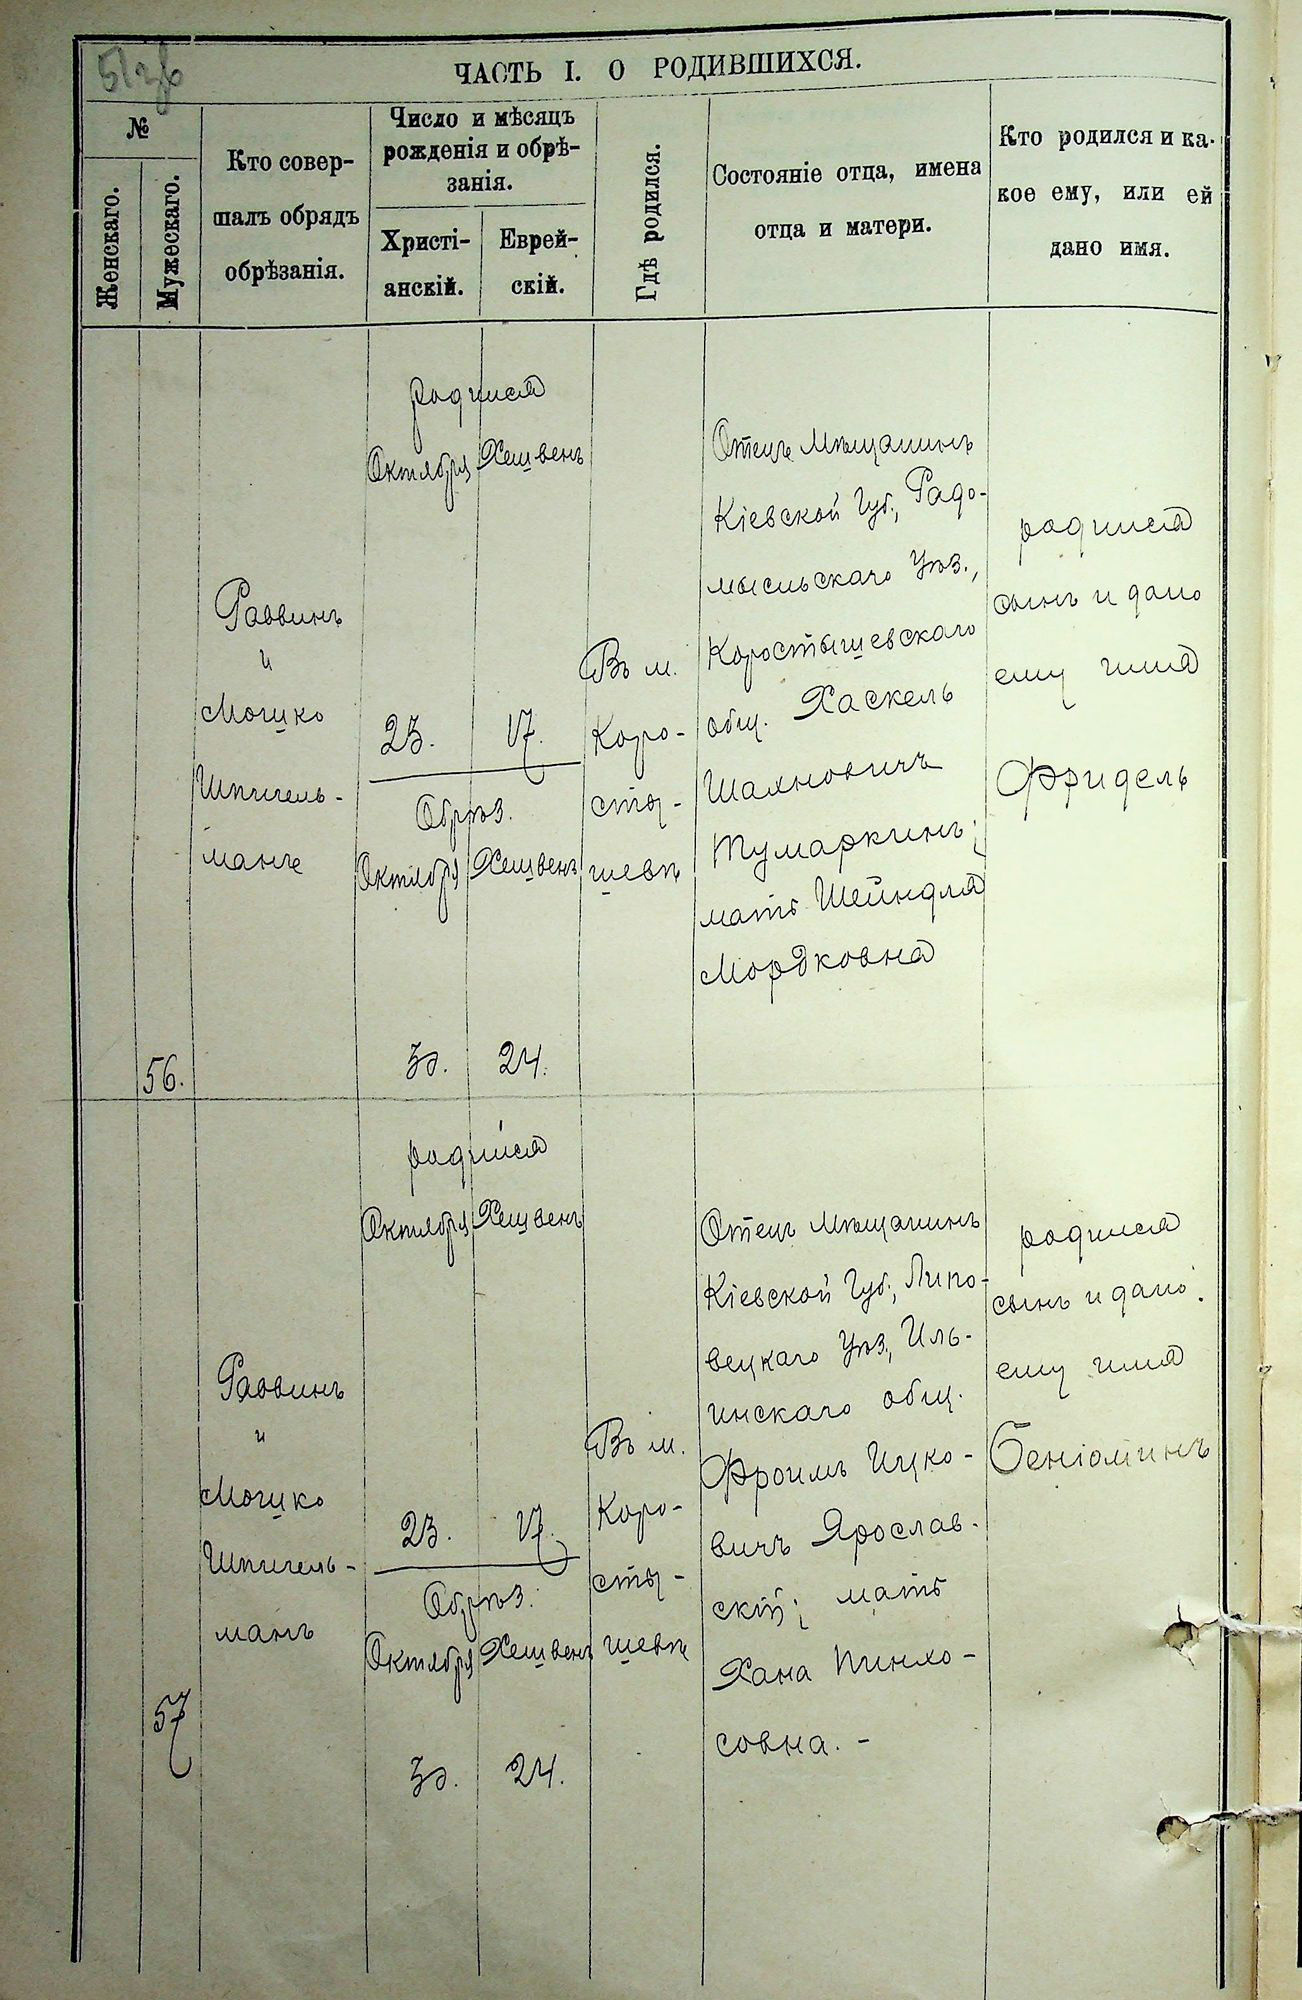 ЧАСТЬ I. О РОДИВШИХСЯ.
№
Женскаго.
Мужескаго.
Кто совер-
шалъ обрядъ
обрѣзанія.
Число и мѣсяцъ
рожденія и обрѣ-
занія.
Христі-
анскій.
Еврей-
скій.
Гдѣ родился.
Состояніе отца, имена
отца и матери.
Кто родился и ка-
кое ему, или ей
дано имя.
56.
Раввинъ
и
Мошко
Шпигель-
манъ
родился
Октября Хешвенъ
23. 17.
Обрѣз.
Октября Хешвенъ
30. 24.
Въ м.
Коро-
сты-
шевѣ
Отецъ Мѣщанинъ
Кіевской Губ., Радо-
мысльскаго Уѣз.,
Коростышевскаго
общ. Хаскель
Шахновичъ
Тумаркинъ;
мать Шейндля
Мордковна
родился
сынъ и дано
ему имя
Фридель
57
Раввинъ
и
Мошко
Шпигель-
манъ
родился
Октября Хешвенъ
23. 17.
Обрѣз.
Октября Хешвенъ
30. 24.
Въ м.
Коро-
сты-
шевѣ
Отецъ Мѣщанинъ
Кіевской Губ., Липо-
вецкаго Уѣз., Иль-
инскаго общ.
Фроимъ Ицко-
вичъ Ярослав-
скій; мать
Хана Пинхо-
совна. -
родился
сынъ и дано
ему имя
Беніоминъ